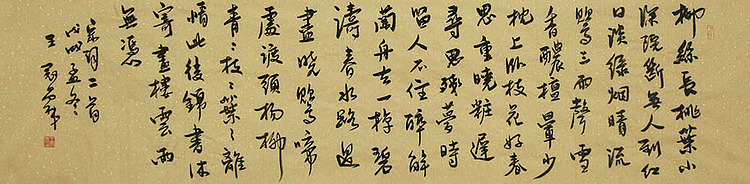 柳絲長桃葉小
深院斷無人到紅
日淡綠烟晴流
鶯三兩聲雪
香醲檀暈少
枕上卧枝花好春
思重曉粧遲
尋思殘夢時
留人不住醉解
蘭舟去一棹碧
濤春水路過
盡曉鶯啼
處渡頭楊柳
青々枝々葉々離
情此後錦書休
寄畫樓雲雨
無憑
宋詞二首
戊戌孟冬
王